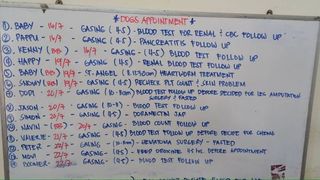 * DOGS APPOINTMENT *
① BABY - 16/7 - GASING (4.5) - BLOOD TEST FOR RENAL & CBC FOLLOW UP
② PAPPU - 16/7 - GASING (4.5) - PANCREATITIS FOLLOW UP
③ KENNY (BB) - 16/7 - GASING (4.5) - BLOOD TEST FOLLOW UP
④ HAPPY - 19/7 - GASING (4.5) - RENAL BLOOD TEST FOLLOW UP
⑤ BABY (BB) 19/7 - ST. ANGEL HEARTWORM TREATMENT
⑥ (BB) 19/7 - GASING (4.5) RECHECK PLT COUNT & SKIN PROBLEM
⑦ - 20/7 - GASING BLOOD TEST FOLLOW UP BEFORE DECIDED FOR LEG AMPUTATION
SURGERY & FASTED
⑧ JASON - 20/7 - GASING - BLOOD TEST FOLLOW UP
⑨ SIMON - 20/7 - GASING (4.5) - JAB
⑩ NAVIN (BB) - 20/7 - GASING (4.5) - BLOOD COUNT FOLLOW UP
- 21/7 - GASING (4.5) BLOOD TEST FOLLOW UP BEFORE DECIDE FOR CHEMO
PETER - 22/7 - GASING - HEMATOMA SURGERY - FASTED
- 22/7 - GASING (4.5) HRS BEFORE APPOINTMENT
- 22/7 - GASING (4.5) - BLOOD TEST FOLLOW UP